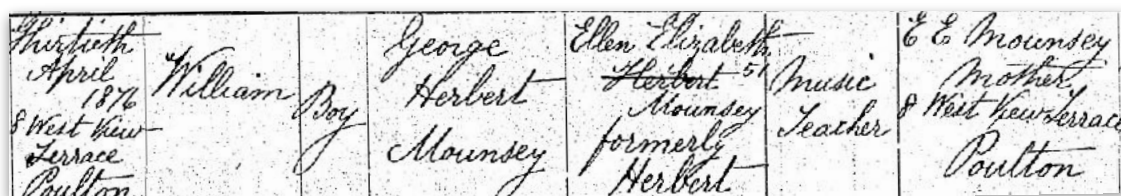 Thirtieth
April
1876
8 West View
Terrace
Poulton
William
Boy
George
Herbert
Mounsey
Ellen Elizabeth
Herbert 51
Mounsey
formerly
Herbert
Music
Teacher
E E Mounsey
Mother
8 West View Terrace
Poulton